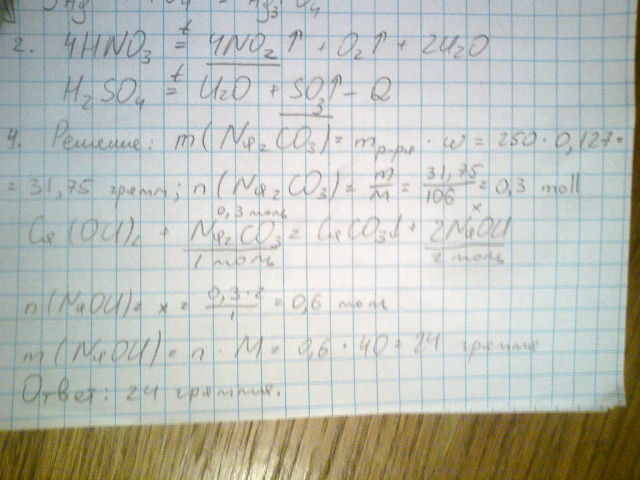 2. 4HNO3 t= 4NO2↑ + O2↑ + 2H2O
H2SO4 t= H2O + SO3↑ - Q
4. Решение: m(Na2CO3) = mр-ра · w = 250 · 0,127 =
= 31,75 грамм; n(Na2CO3) = m/M = 31,75/106 = 0,3 moll
0,3 моль x
Ca(OH)2 + Na2CO3 = CaCO3↓ + 2NaOH
1 моль 2 моль
n(NaOH) = x = 0,3·2/1 = 0,6 моль
m(NaOH) = n · M = 0,6 · 40 = 24 грамма
Ответ: 24 грамма.